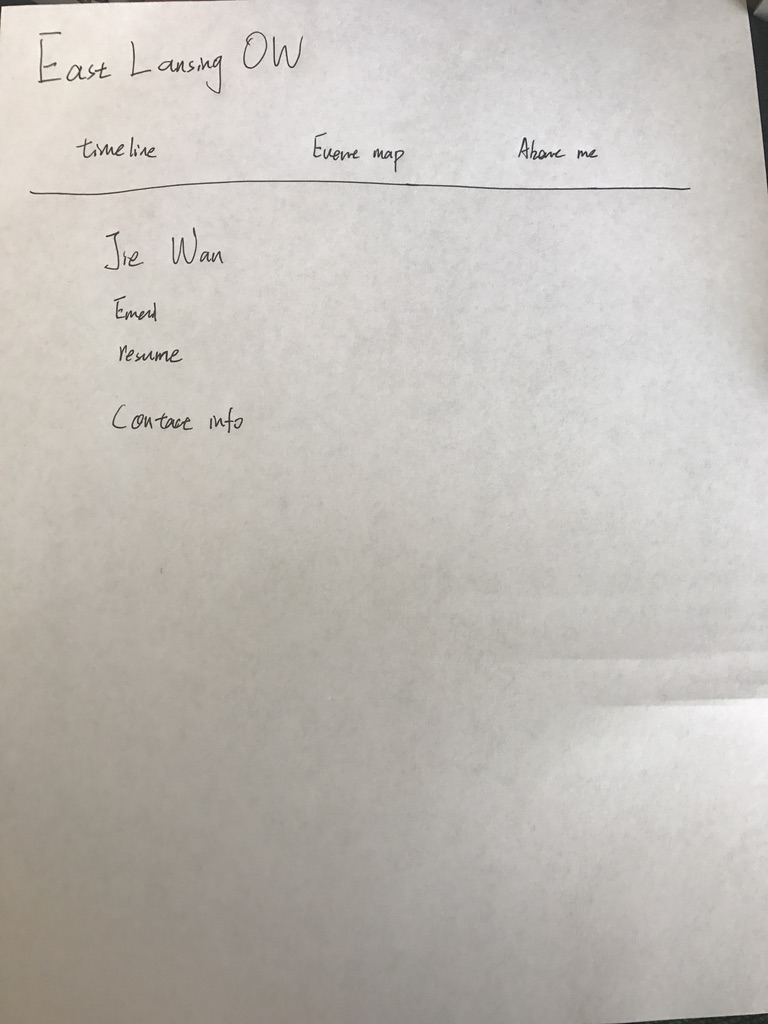 East Lansing OW
timeline Event map About me
Jie Wan
Email
resume
Contact info